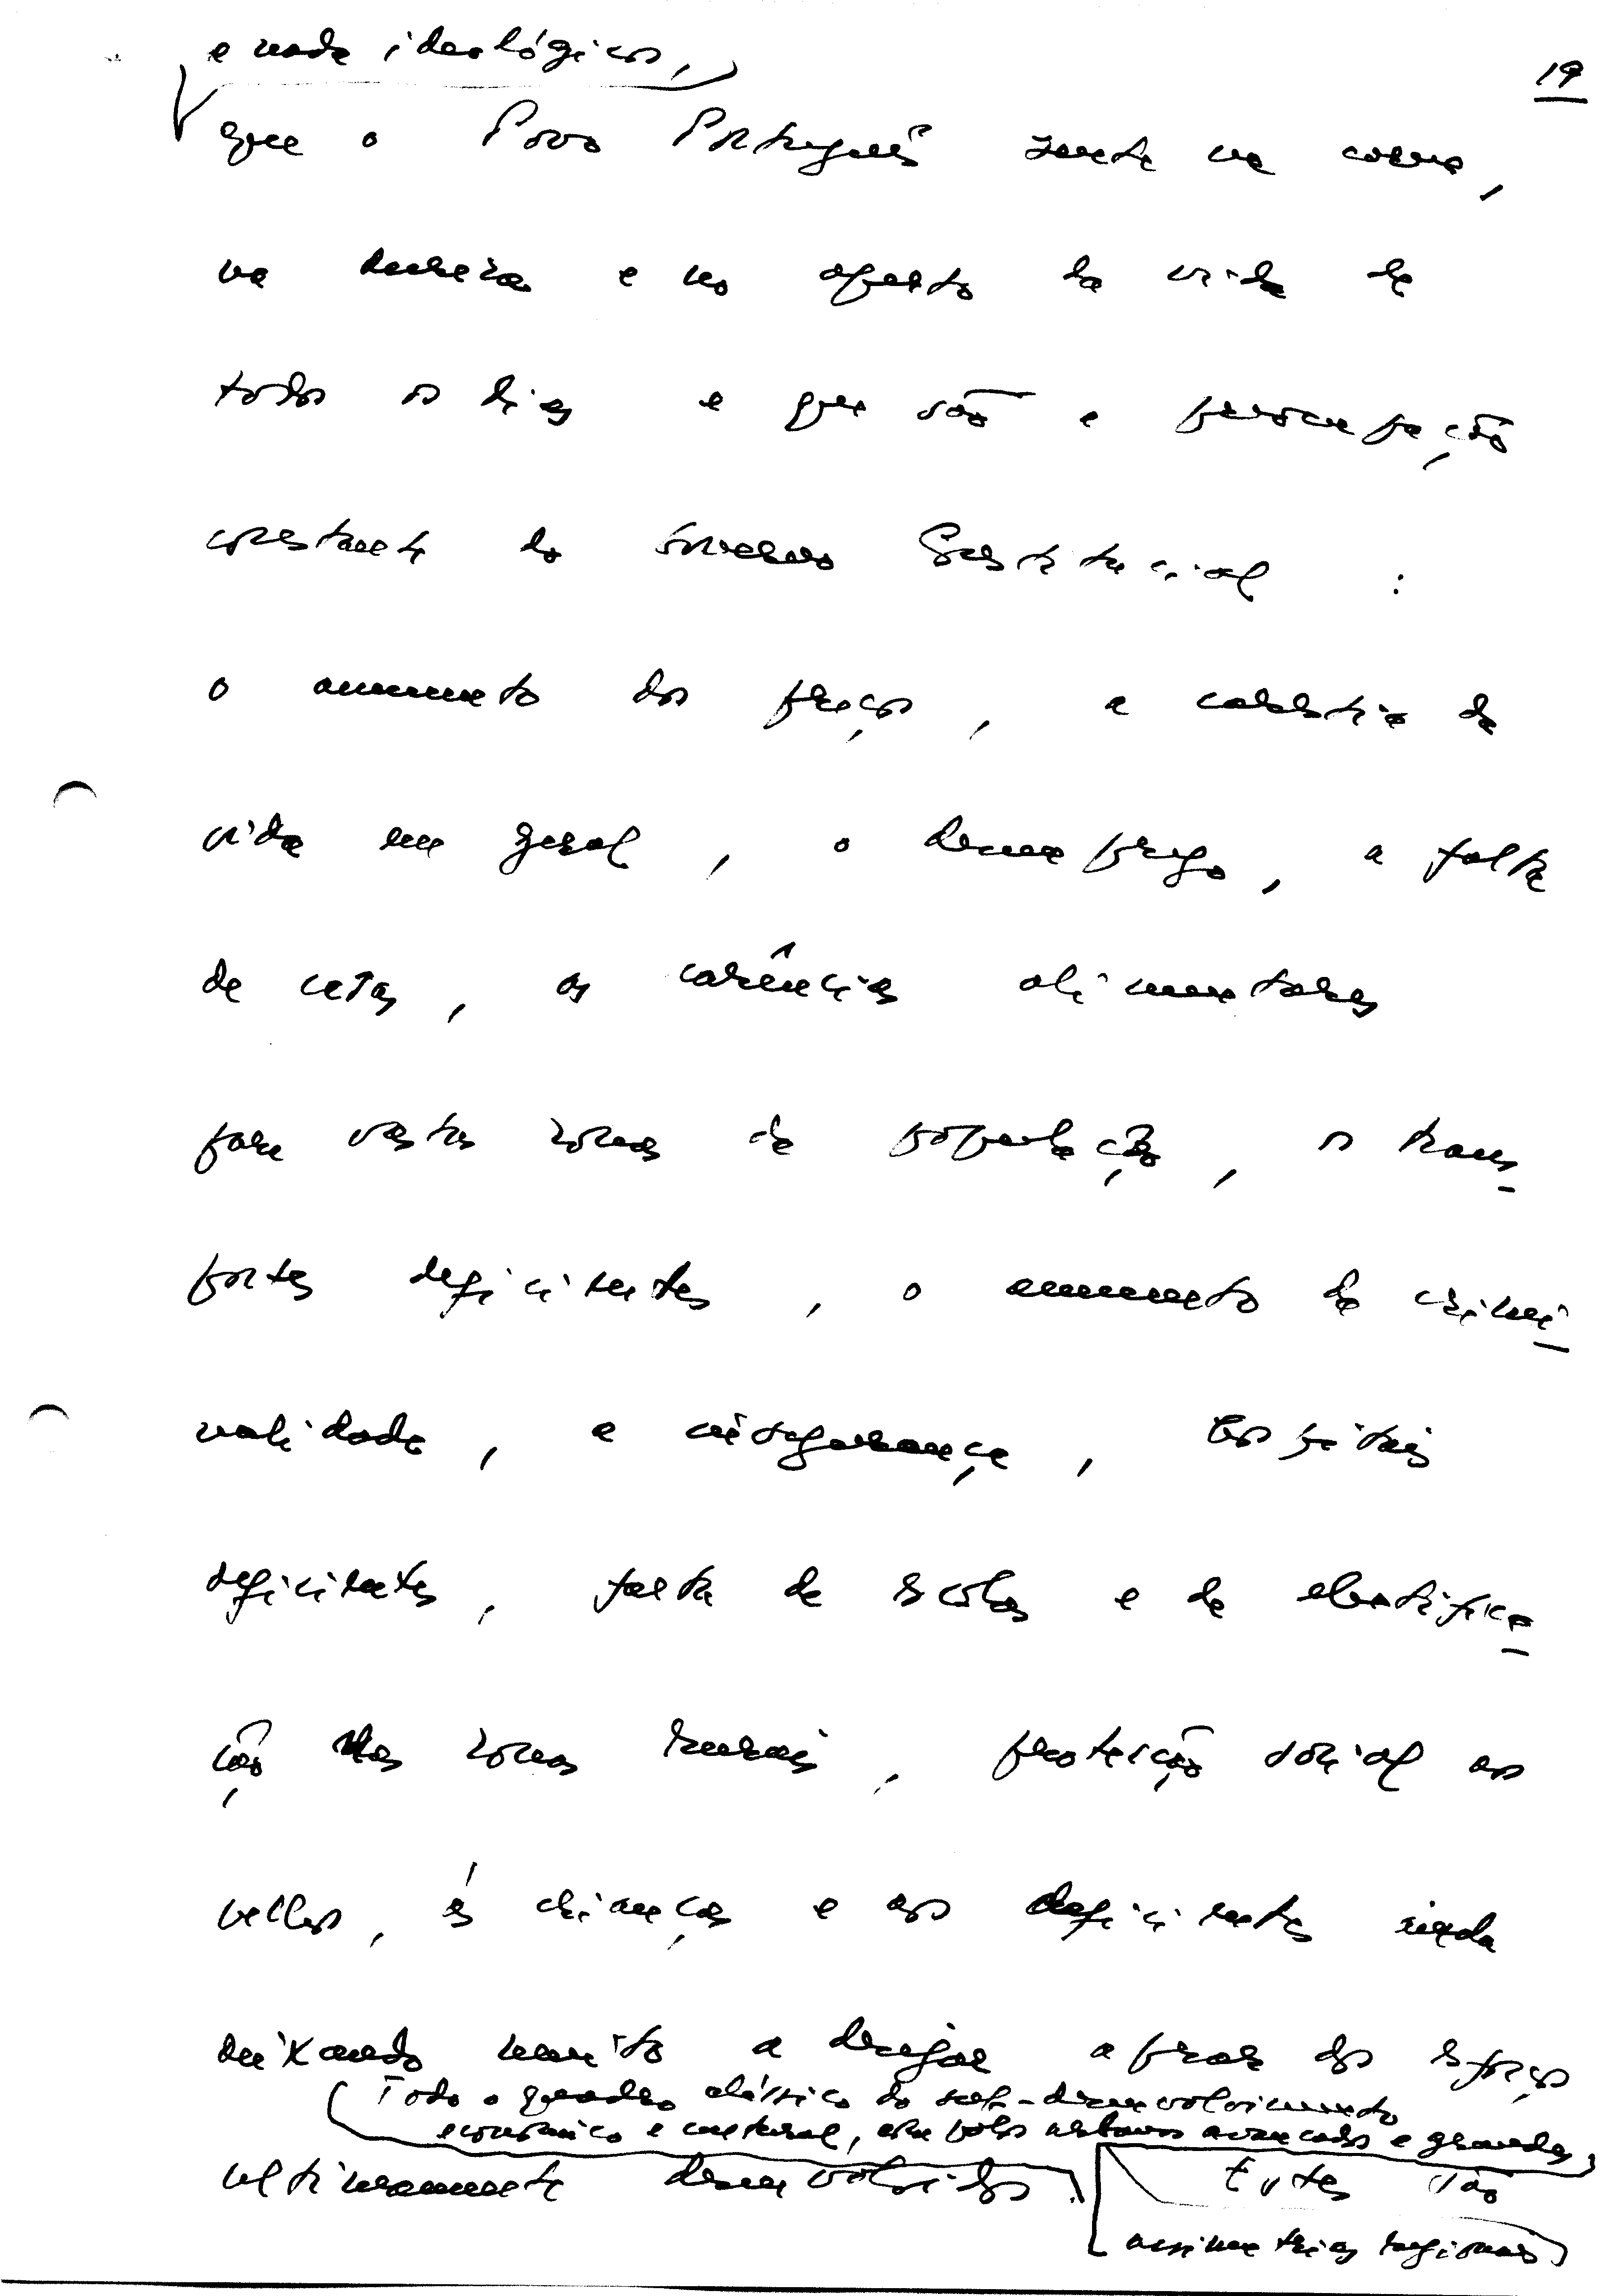 e nada ideológicos,
19
que o Povo Português sente na carne,
na dureza e no aperto da vida de
todos os dias e que são a preocupação
constante do Governo Constitucional :
o aumento dos preços, a carestia da
vida em geral, o desemprego, a falta
de casas, as carências alimentares
para vastas zonas da população, os trans-
portes deficientes, o aumento da crimi-
nalidade, a insegurança, hospitais
deficientes, falta de escolas e de electrifica-
ção nas zonas rurais, protecção social aos
velhos, às crianças e aos deficientes ainda
deixando muito a desejar apesar dos esforços
Todo o quadro clássico do sub-desenvolvimento
económico e cultural, com polos urbanos avançados e grandes
assimetrias regionais
ultimamente desenvolvidos. Estes são